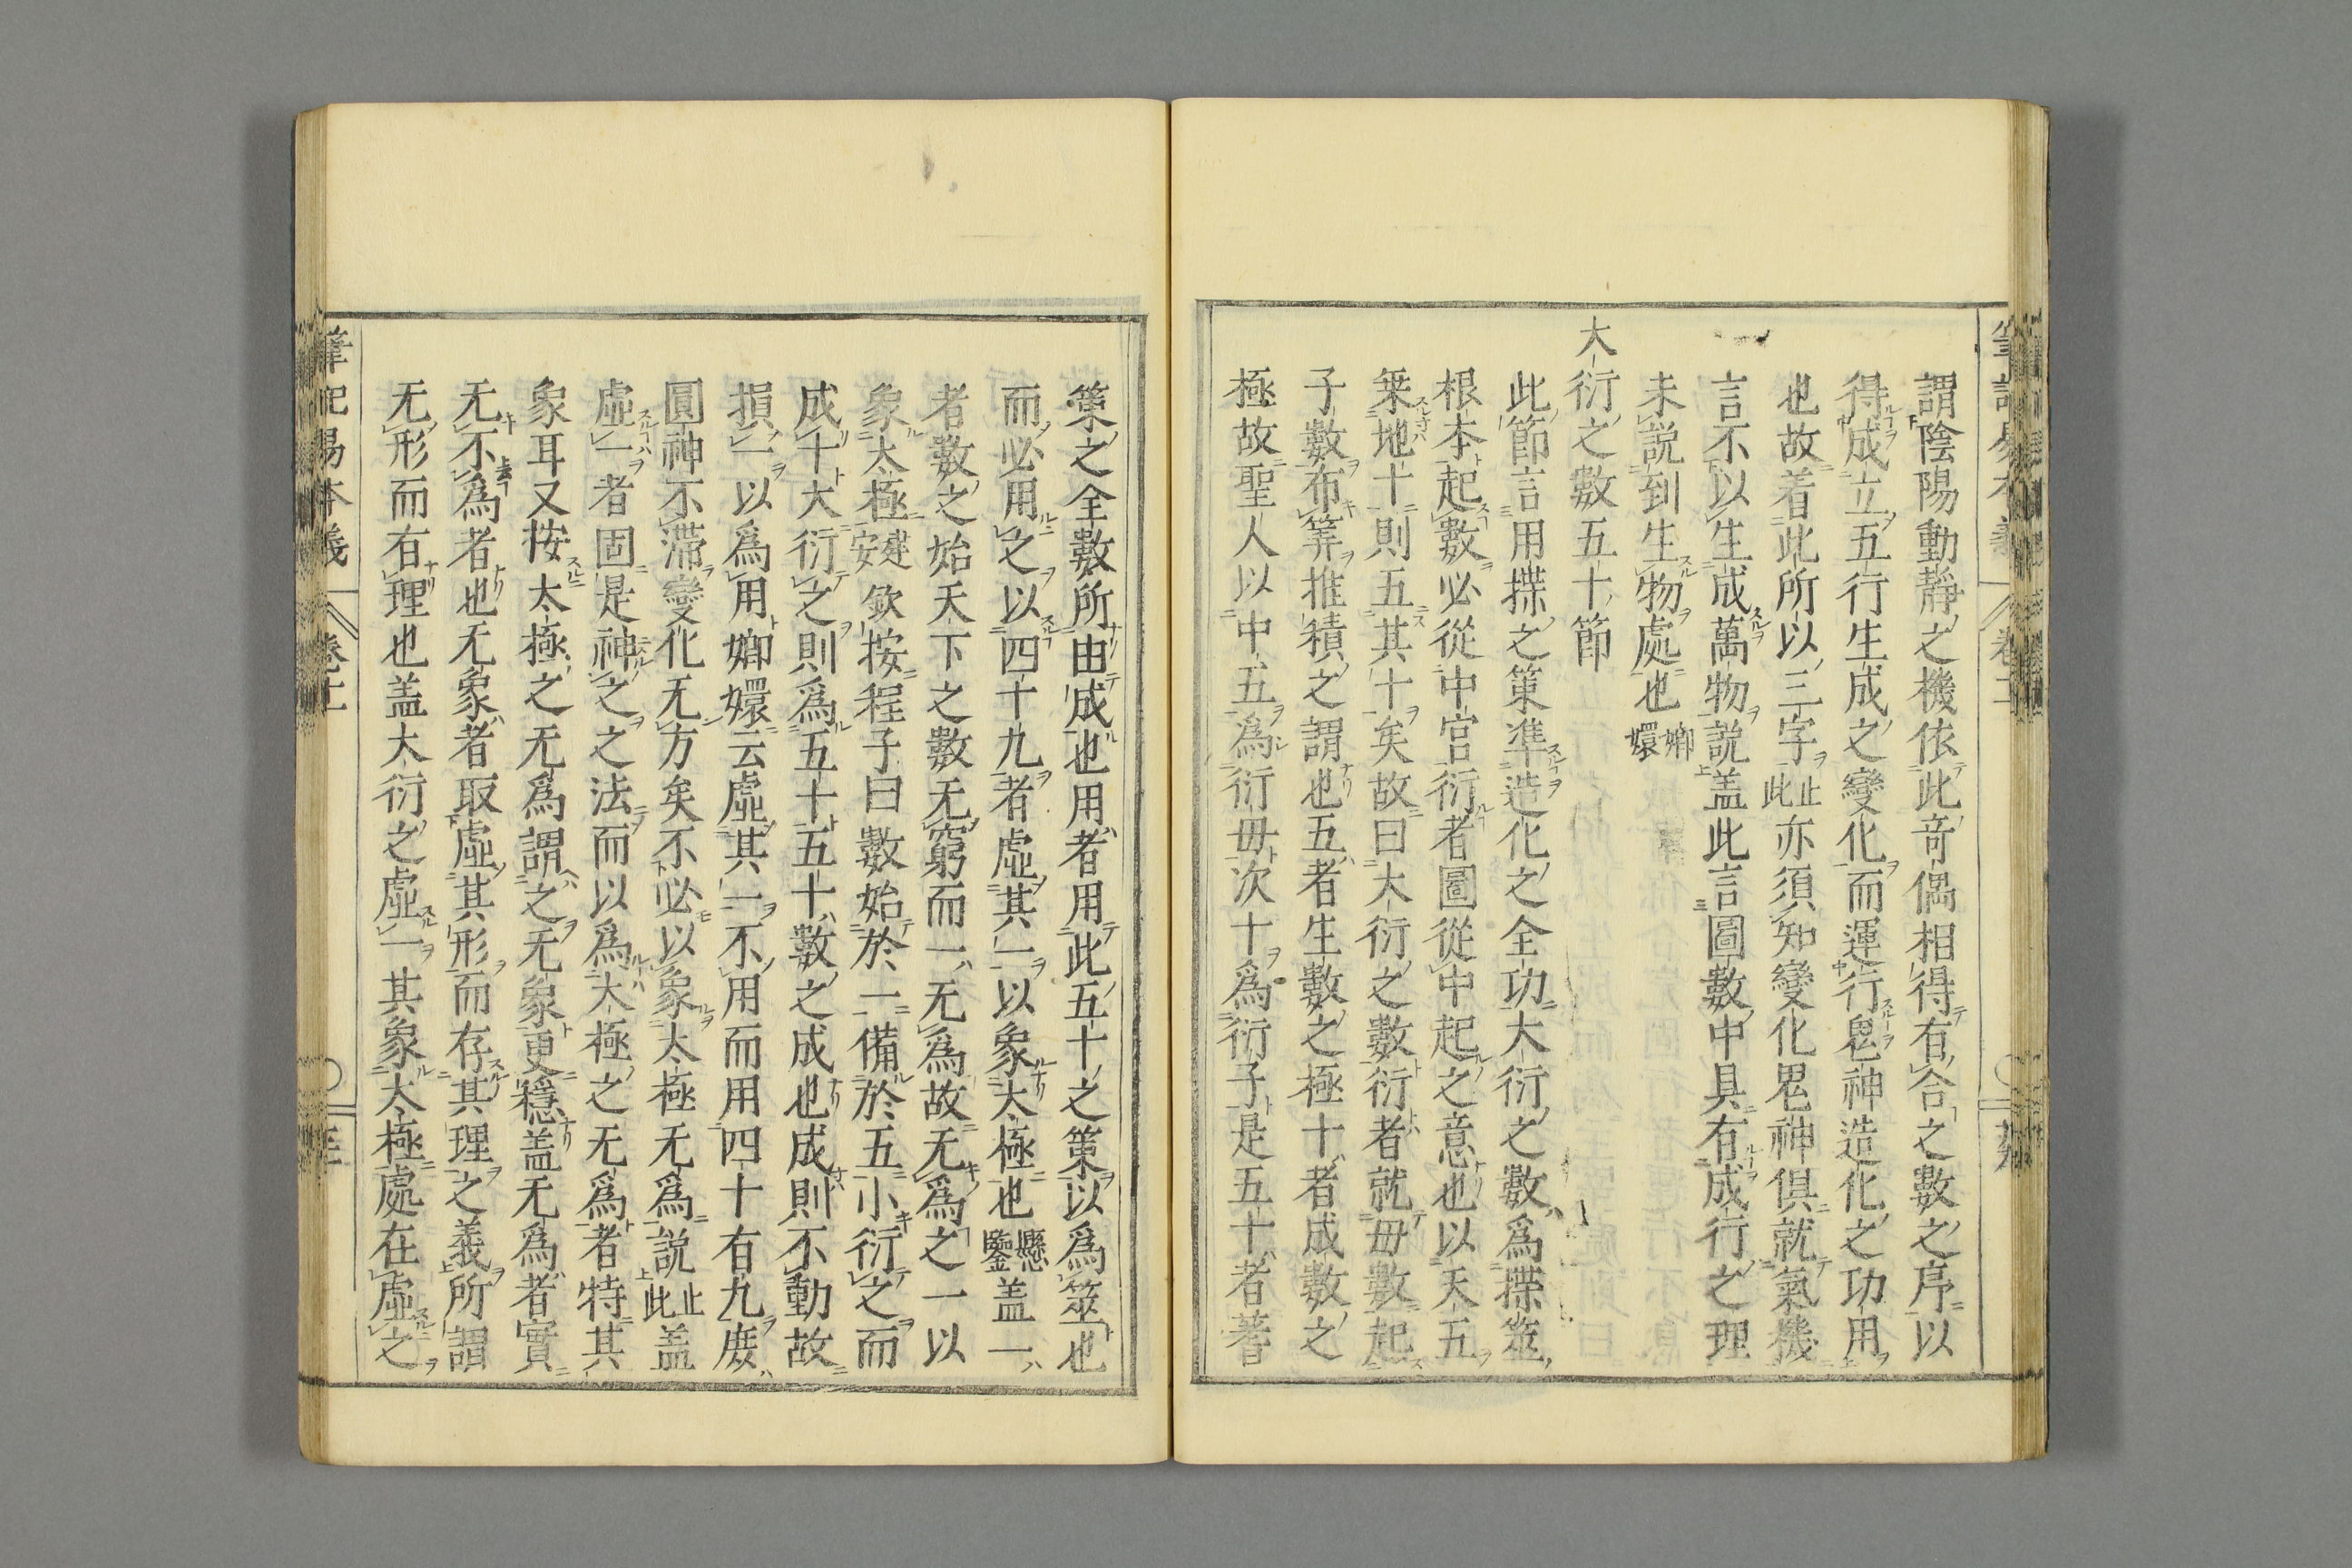 謂陰陽動靜之機依此竒偶相得有合之數之序以
得成立五行生成之變化而運行鬼神造化之功用
也故着此所以三字止此亦須知變化鬼神俱就氣機
言不以生成萬物説盖此言圖數中具有成行之理
未説到生物處也嫏嬛
大衍之數五十節
此節言用揲之策準造化之全功大衍之數爲揲筮
根本起數必從中宮衍者圖從中起之意也以天五
乗地十則五其十矣故曰大衍之數衍者就毋數起
子數布筭推積之謂也五者生數之極十者成數之
極故聖人以中五爲衍毋次十爲衍子是五十者蓍
策之全數所由成也用者用此五十之策以爲筮也
而必用之以四十九者虛其一以象太極也懸鑒盖一
者數之始天下之數无窮而一无爲故无爲之一以
象太極建安欽按程子曰數始於一備於五小衍之而
成十大衍之則爲五十五十數之成也成則不動故
損一以爲用嫏嬛云虛其一不用而用四十有九㢘
圓神不滯變化无方矣不必以象太極无爲説止此盖
虛一者固是神之之法而以爲太極之无爲者特其
象耳又按太極之无爲謂之无象更穩盖无爲者實
无不爲者也无象者取虛其形而存其理之義所謂
无形而有理也盖大衍之虛一其象太極處在虛之
筆記易本義 卷十